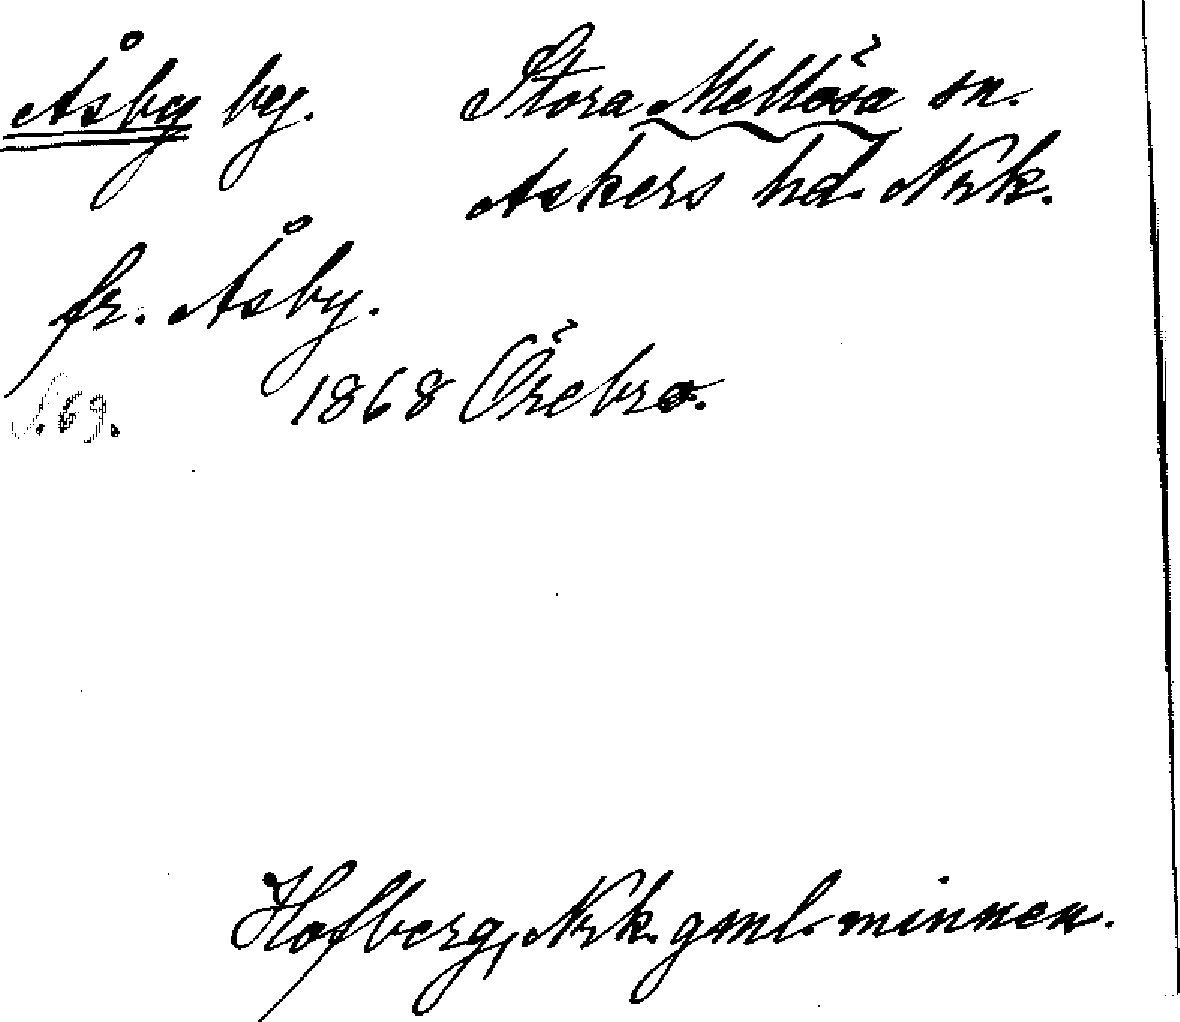 Åsby by. Stora Mellösa sn.
Askers hd. Nrk.
fr. Åsby.
S. 69. 1868 Örebro.
Hofberg, Nrk. gml. minnen.